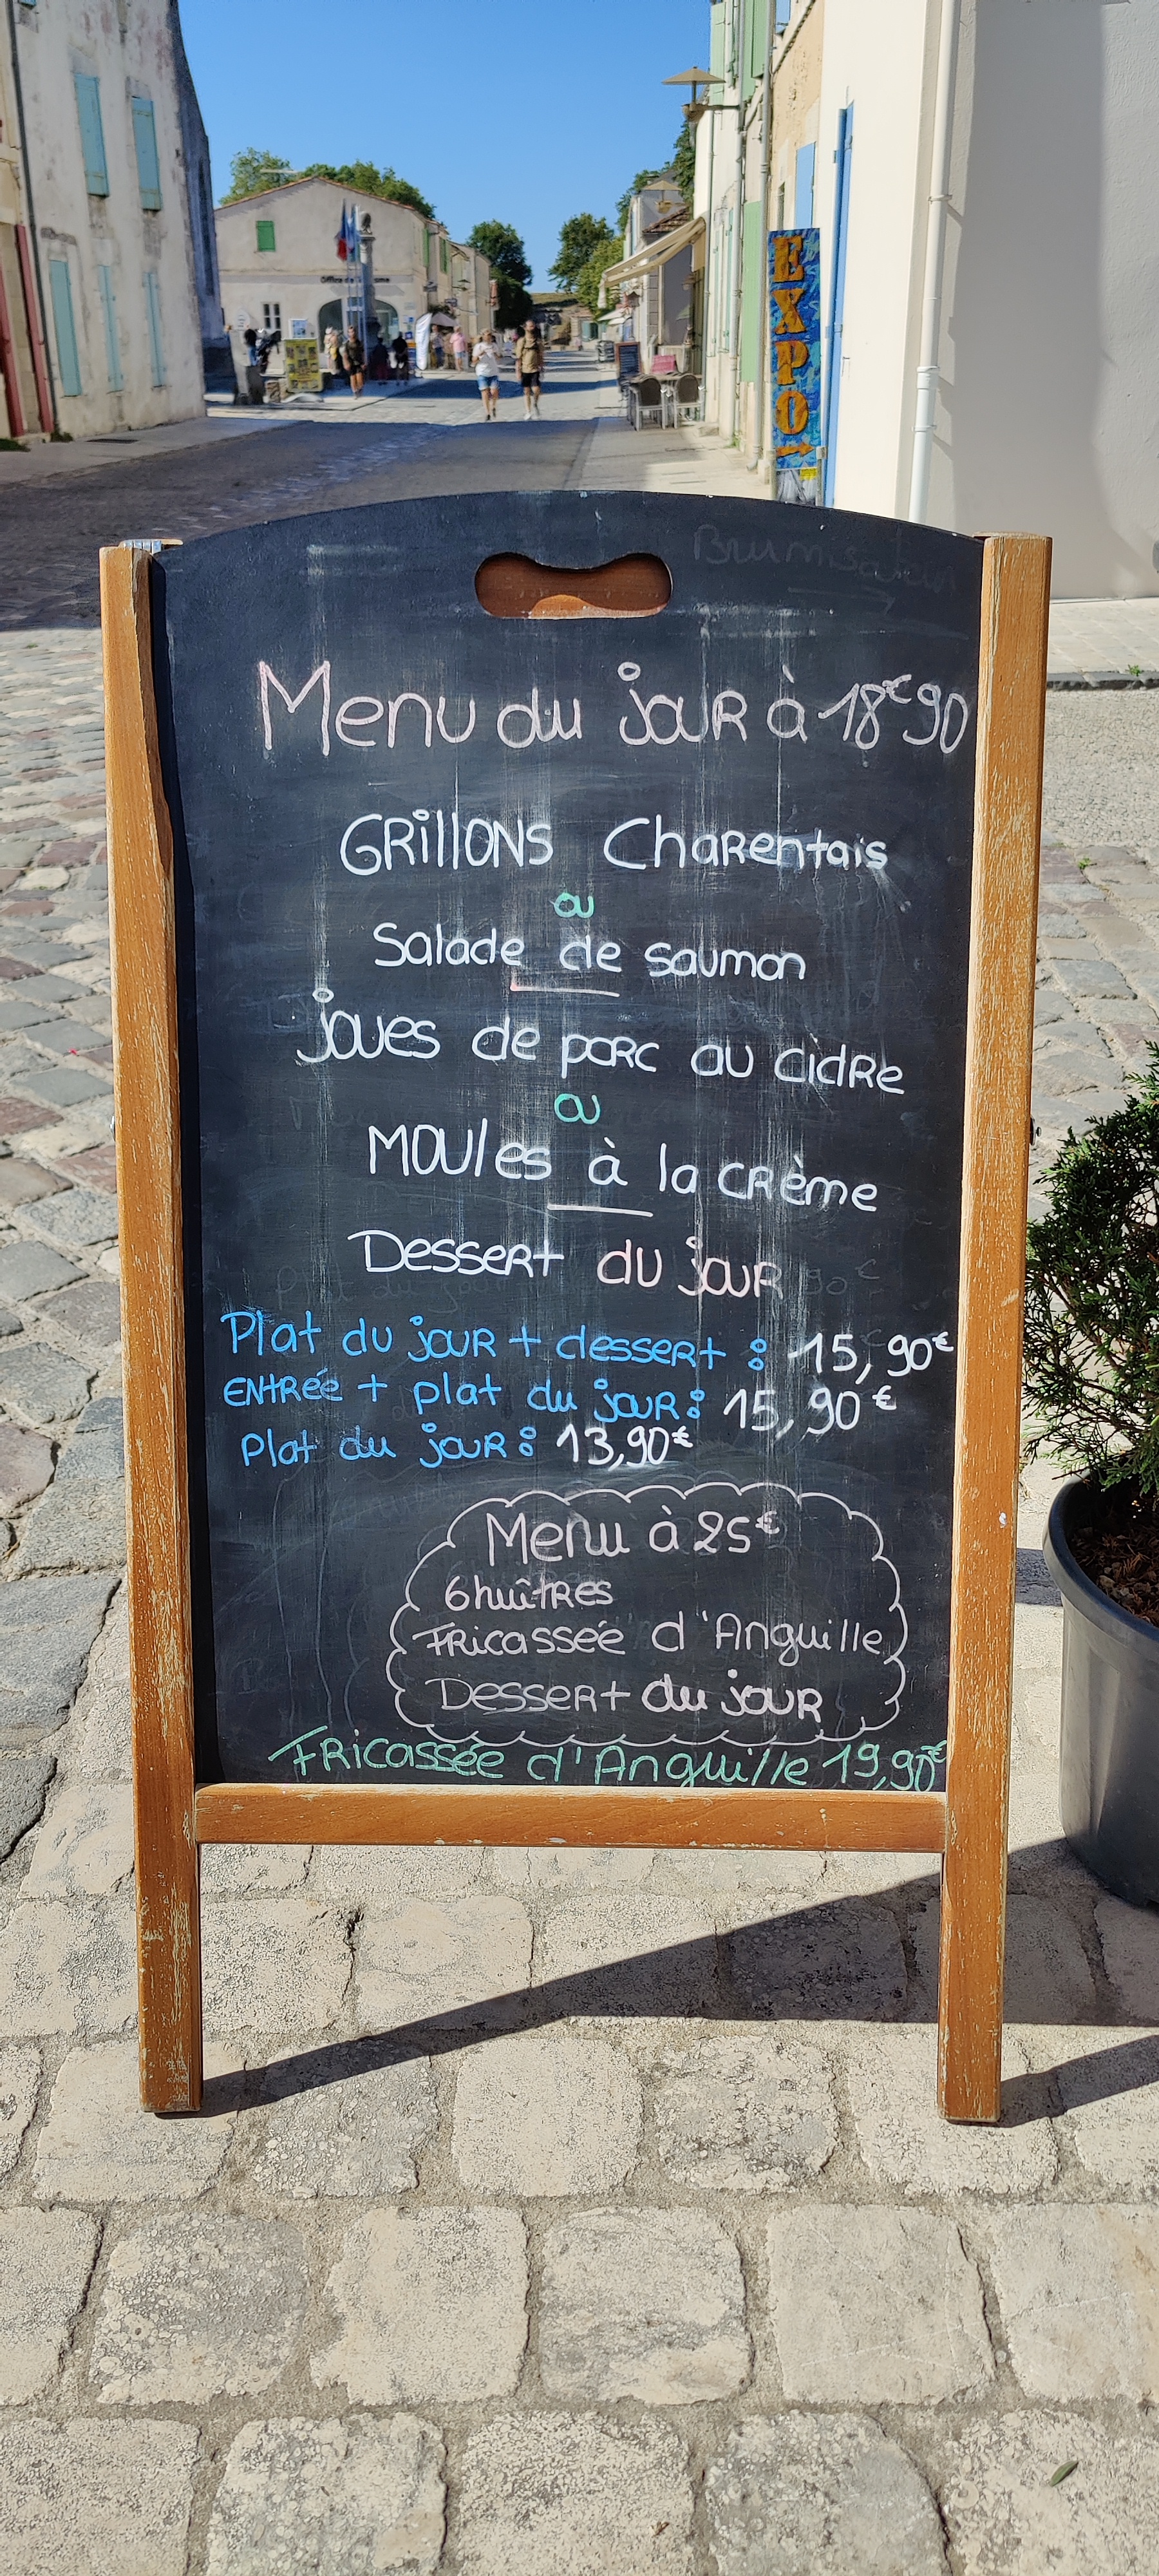 Office de Tourisme
EXPO
Brumisateur
Menu du jour à 18€90
Grillons Charentais
ou
Salade de saumon
joues de porc au cidre
ou
Moules à la crème
Dessert du jour
Plat du jour + dessert : 15,90€
Entrée + plat du jour : 15,90€
Plat du jour : 13,90€
Menu à 25€
6 huîtres
Fricassée d'Anguille
Dessert du jour
Fricassée d'Anguille 19,90€